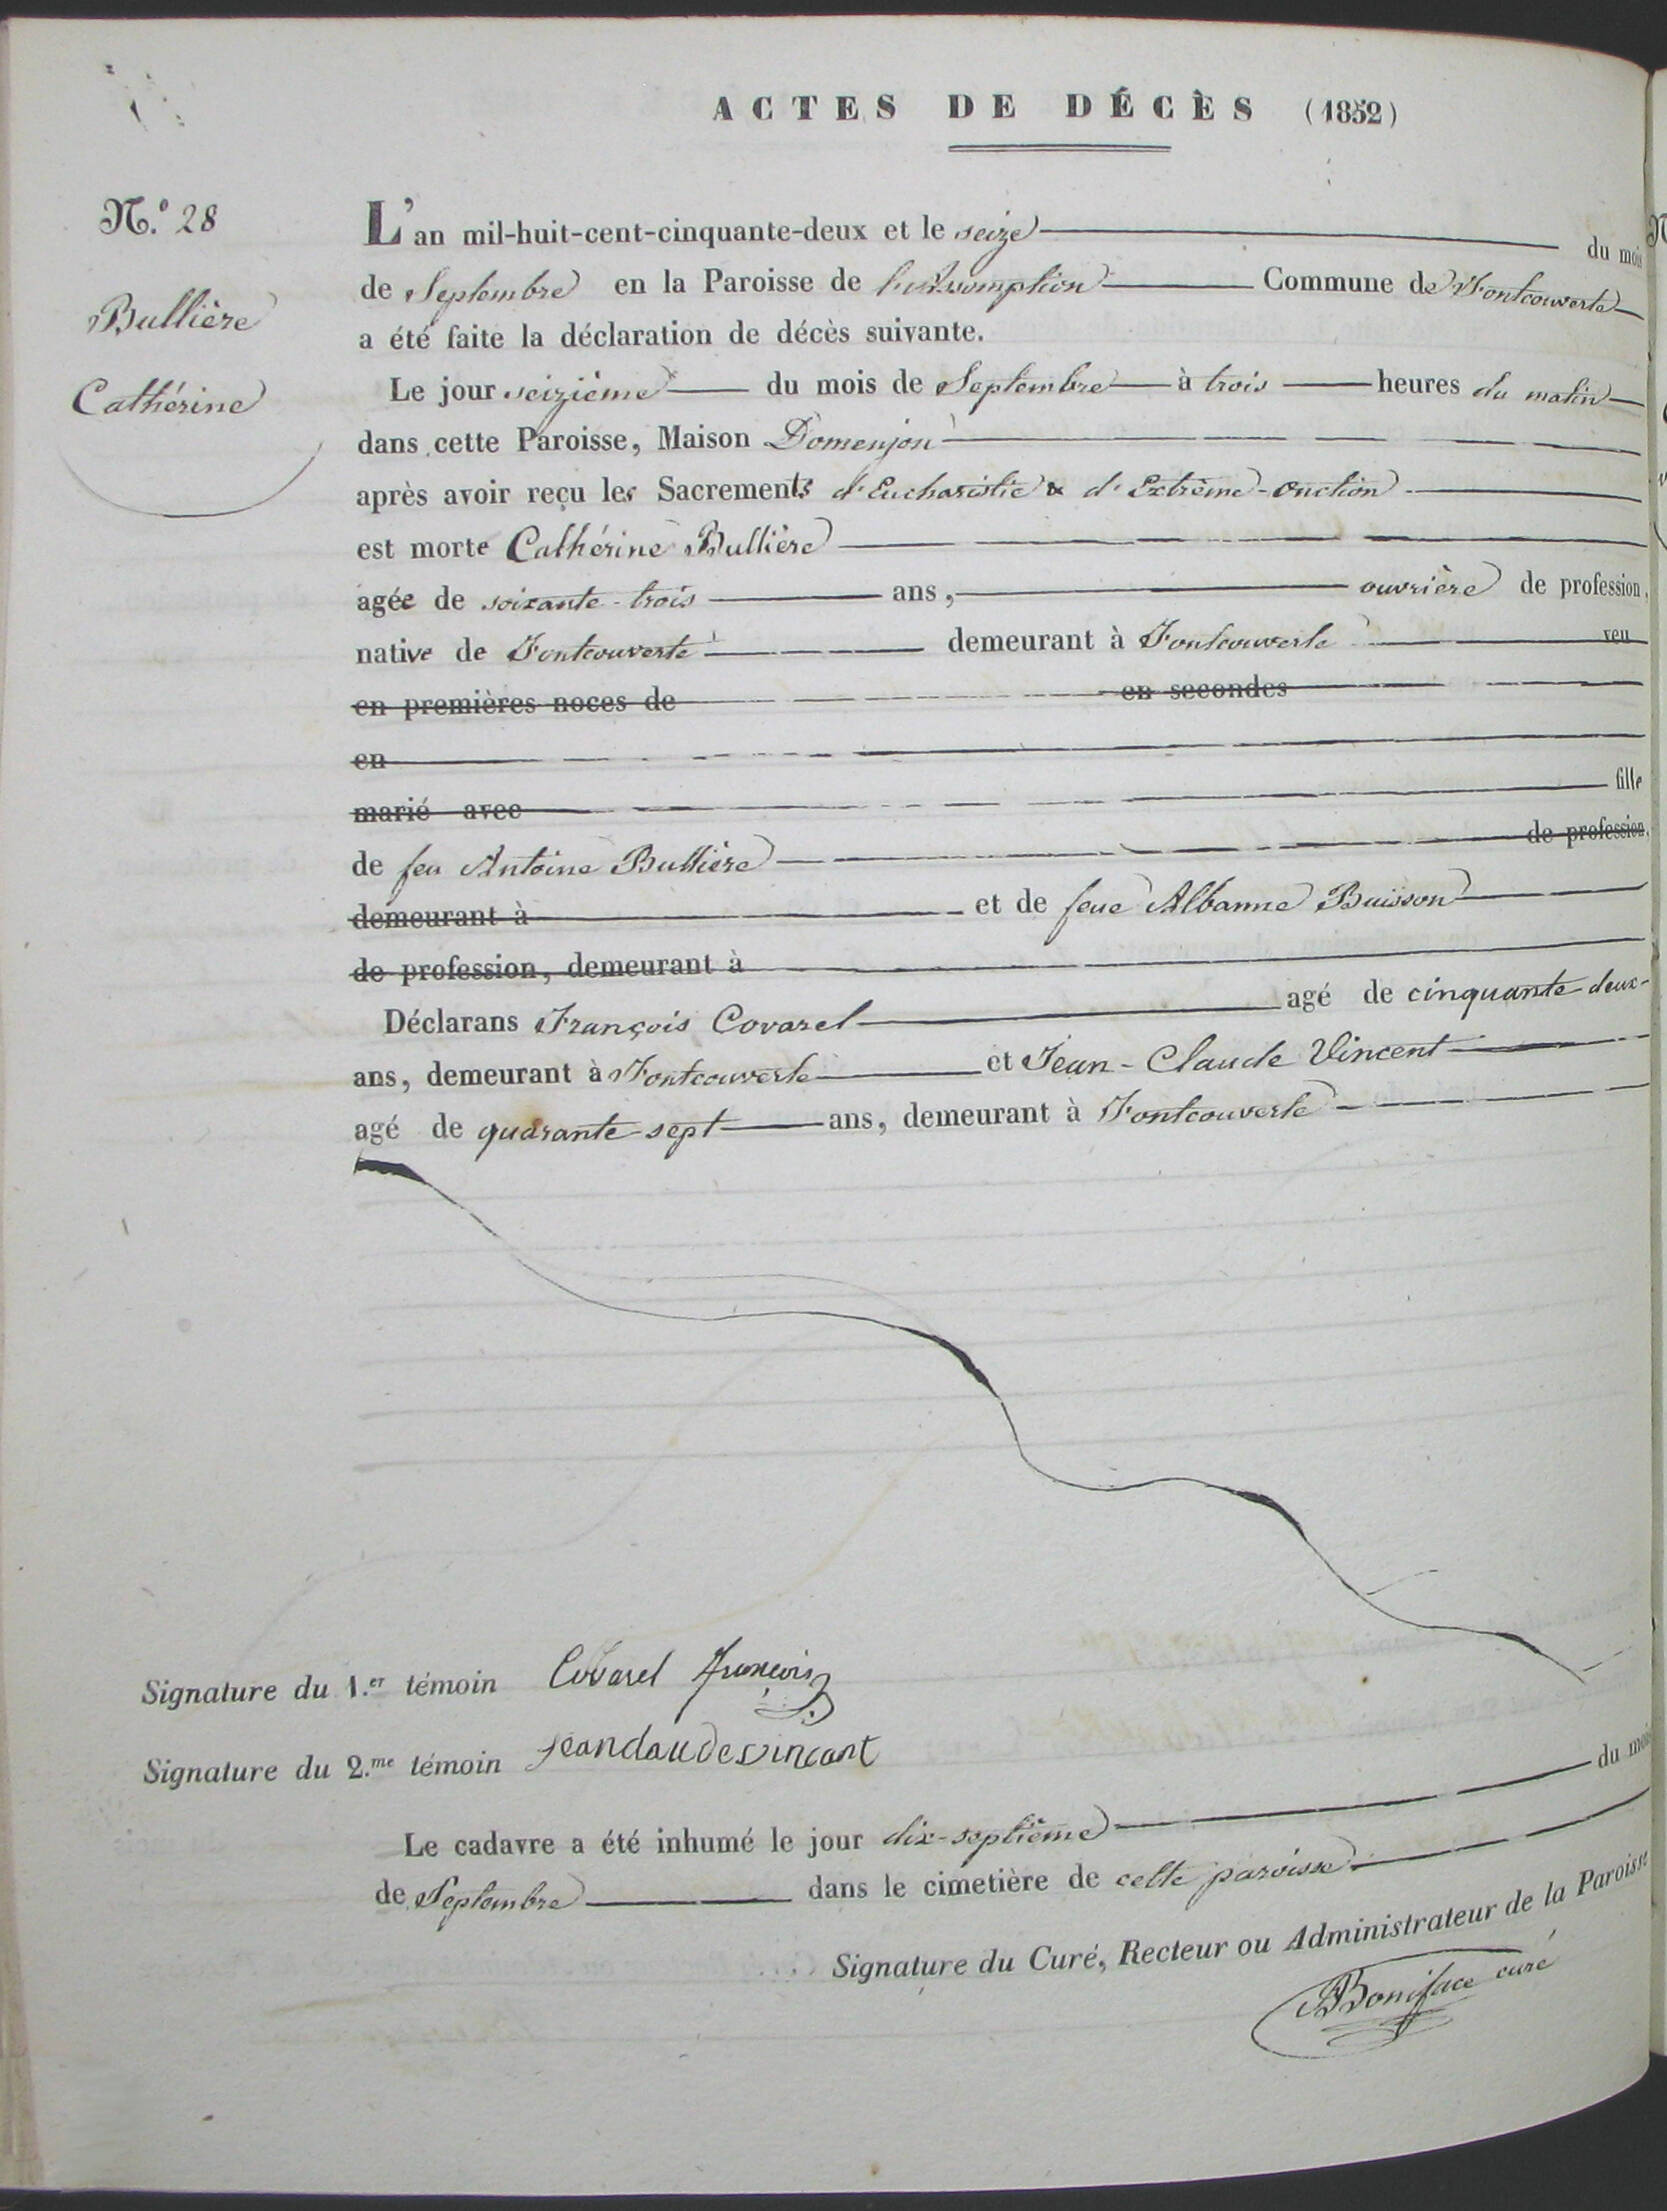 ACTES DE DÉCÈS (1852)
N.º 28
Bullière
Cathérine
L'an mil-huit-cent-cinquante-deux et le seize du mois
de Septembre en la Paroisse de l'Assomption Commune de Fontcouverte
a été faite la déclaration de décès suivante.
Le jour seizième du mois de Septembre à trois heures du matin
dans cette Paroisse, Maison Domenjon
après avoir reçu les Sacrements d'Eucharistie & d'Extrême-Onction
est morte Cathérine Bullière
agée de soixante-trois ans, ouvrière de profession,
native de Fontcouverte demeurant à Fontcouverte veu
en premières noces de en secondes
en
marié avec fille
de feu Antoine Bullière de profession,
demeurant à et de feue Albanne Buisson
de profession, demeurant à
Déclarans François Covarel agé de cinquante-deux
ans, demeurant à Fontcouverte et Jean-Claude Vincent
agé de quarante-sept ans, demeurant à Fontcouverte
Signature du 1.er témoin Covarel François
Signature du 2.me témoin jeanclaudesvincant
Le cadavre a été inhumé le jour dix-septième du mois
de Septembre dans le cimetière de cette paroisse
Signature du Curé, Recteur ou Administrateur de la Paroisse
Boniface curé